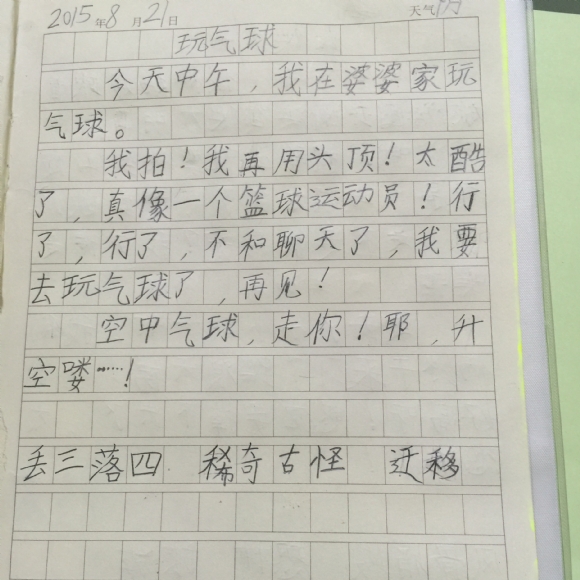 2015年8月21日 天气阴
玩气球
今天中午，我在婆婆家玩
气球。
我拍！我再用头顶！太酷
了，真像一个篮球运动员！行
了，行了，不和聊天了，我要
去玩气球了，再见！
空中气球，走你！耶，升
空喽……！
丢三落四 稀奇古怪 迁移